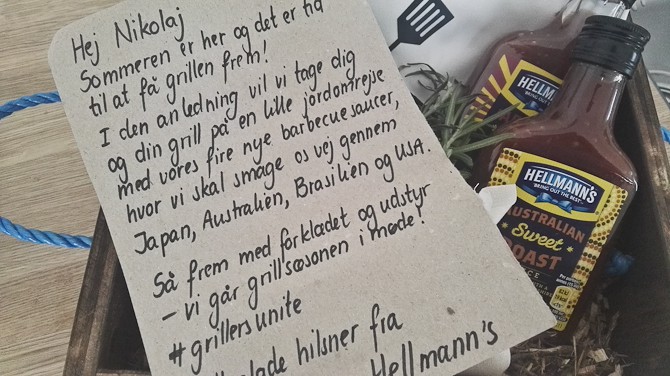 Hej Nikolaj
Sommeren er her og det er tid
til at få grillen frem!
I den anledning vil vi tage dig
og din grill på en lille jordomrejse
med vores fire nye barbecuesaucer,
hvor vi skal smage os vej gennem
Japan, Australien, Brasilien og USA.
Så frem med forklædet og udstyr
- vi går grillsæsonen i møde!
#grillersunite
hilsner fra
Hellmann's
HELLMANN'S
HELLMANN'S
"BRING OUT THE BEST"
AUSTRALIAN
Sweet
ROAST